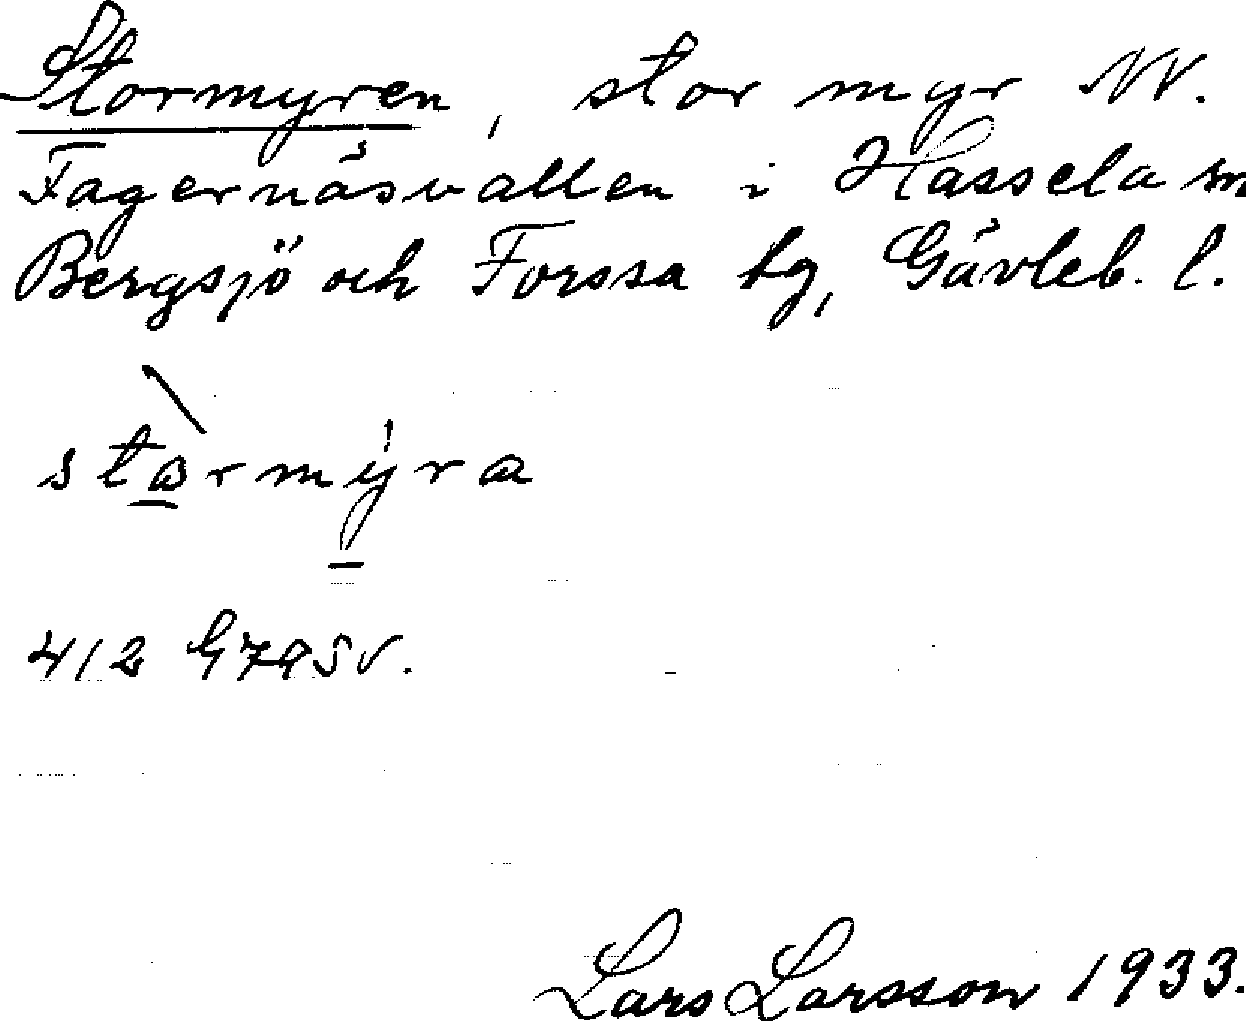 Stormyren, stor myr NV.
Fagernäsvallen i Hassela sn
Bergsjö och Forssa tg, Gävleb. l.
stormýra
412 G7a5v.
Lars Larsson 1933.